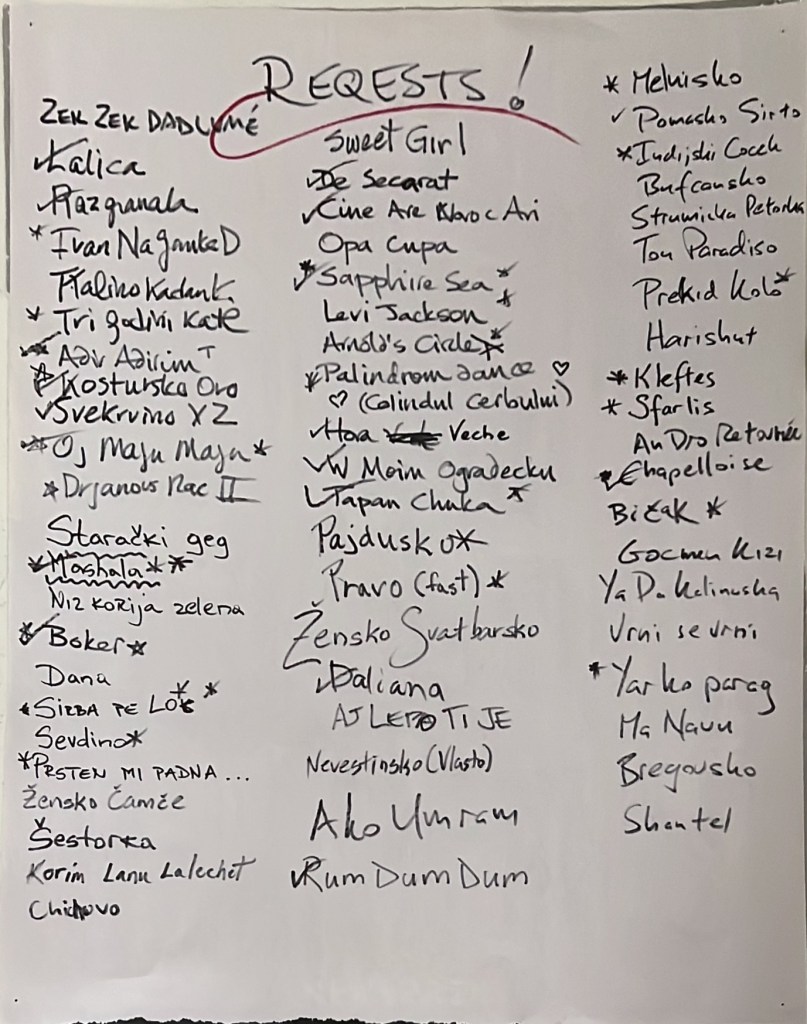 REQESTS!
ZEK ZEK DADUMÉ
✓Lalica
✓Razgranala
* Ivan Na Janke D
Kate
* Tri godini Kate
Adir Adirim T
Kostursko Oro
✓Svekrvino X2
* Oj Maju Maju *
* Drjanovs Rac II
Starački geg
✓Mashala * *
NIZ KORIJA zelena
✓Boker *
Dana
* SIRBA PE LOC * *
Sevdino *
* PRSTEN MI PADNA...
Žensko Čamče
Šestorka
Korim Lanu Lalechet
Chichovo
Sweet Girl
✓De Secarat
✓Cine Are Noroc Ari
Opa Cupa
✓* Sapphire Sea *
Levi Jackson *
Arnold's Circle *
* Palindrom dance ♡
♡ (Colindul Cerbului)
✓Hora Veche
✓W Moim Ogradecku
✓Tapan Chuka *
Pajdusko *
Pravo (fast) *
Žensko Svatbarsko
✓Daliana
AJ LEPO TI JE
Nevestinsko (Vlasto)
Ako Umram
✓Rum Dum Dum
* Melnisko
✓ Pomasko Sirto
* Indijski Cocek
Bufcansko
Strumicka Petorka
Ton Paradiso
Prekid Kolo *
Harishut
* Kleftes
* Sfarlis
An Dro Retournée
✓Chapelloise
Bičak *
Gocmen Kizi
Ya Da Kalinushka
Vrni se vrni
* Yarko parag
Ma Navu
Bregovsko
Shantel